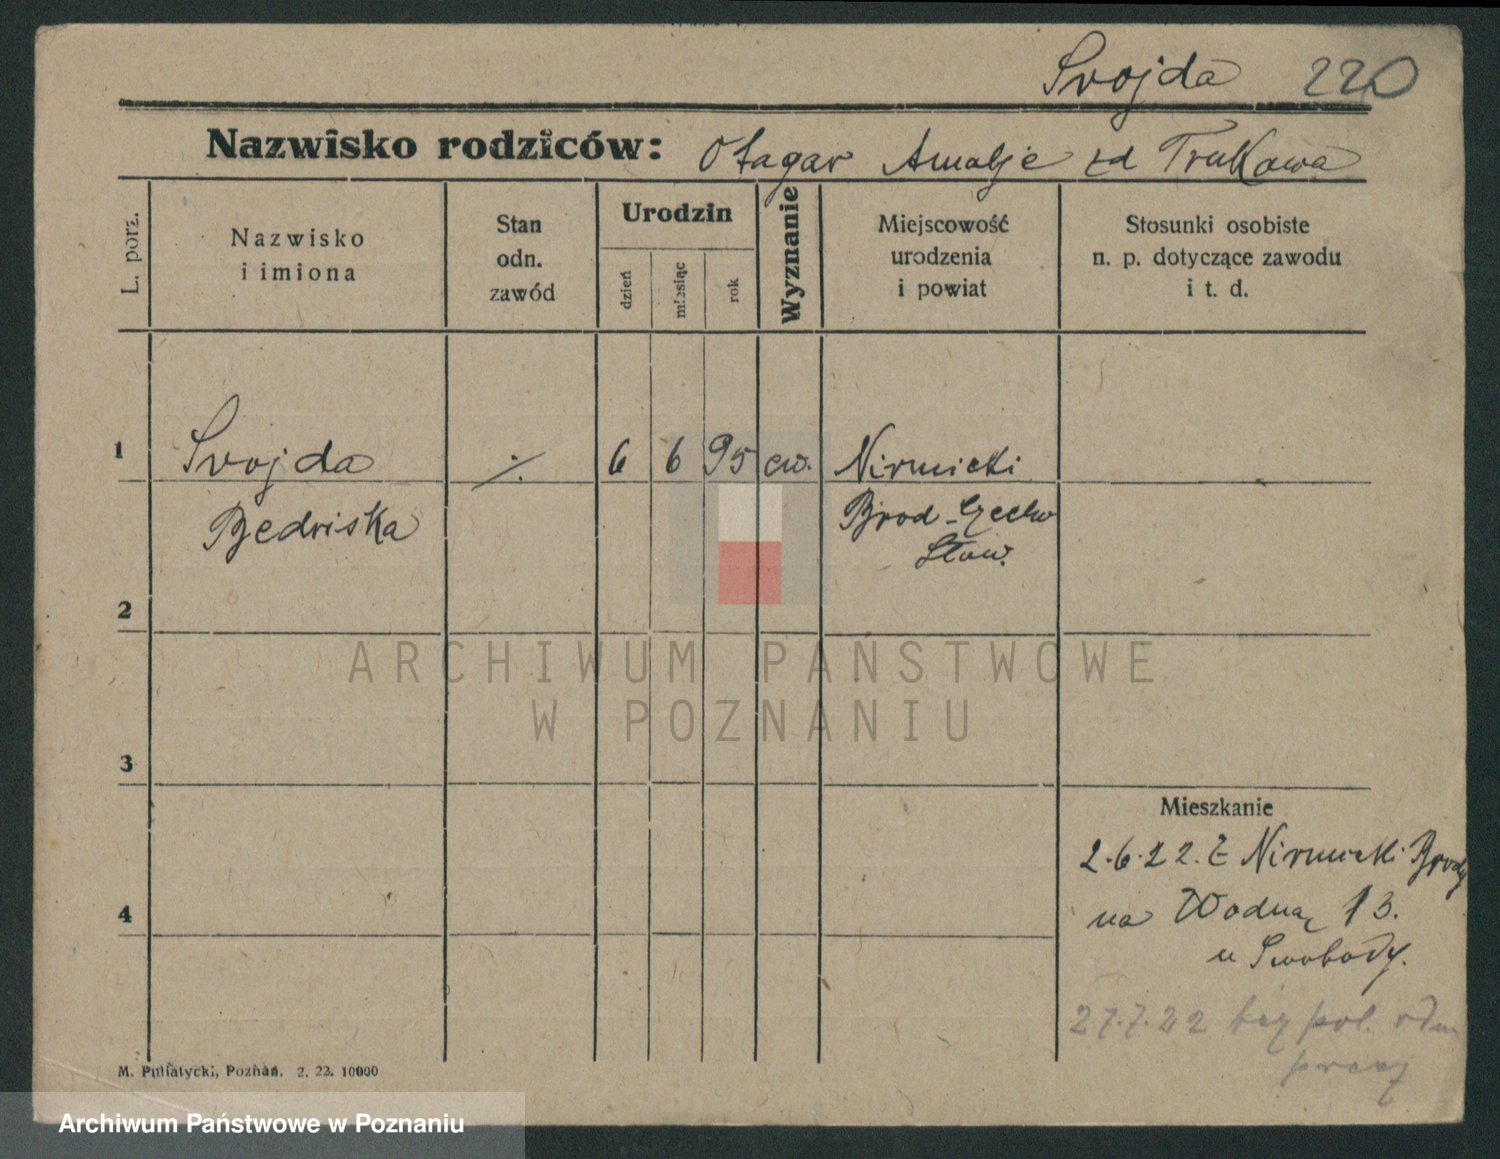 Svojda 220
Nazwisko rodziców: Otagar Amalje zd Trukawa
L. porz.
Nazwisko
i imiona
Stan
odn.
zawód
Urodzin
dzień
miesiąc
rok
Wyznanie
Miejscowość
urodzenia
i powiat
Stosunki osobiste
n. p. dotyczące zawodu
i t. d.
1 Svojda ·/. 6 6 95 ew. Nirmicki
Bedriska Brod-Czecho
Słow.
2
3
4
Mieszkanie
2.6.22. Z Nirmicki Brody
na Wodną 13.
u Swobody.
27.7.22 bez pol.
pracy
M. Putiatycki, Poznań. 2. 22. 10000
ARCHIWUM PAŃSTWOWE
W POZNANIU
Archiwum Państwowe w Poznaniu